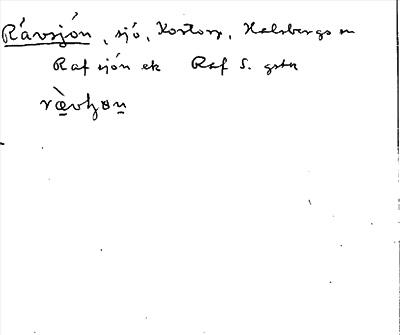 Rávsjón, sjö, Kortorp, Halsbergs sn
Rafsjön ek Raf S. gstn
ræ̀vhon